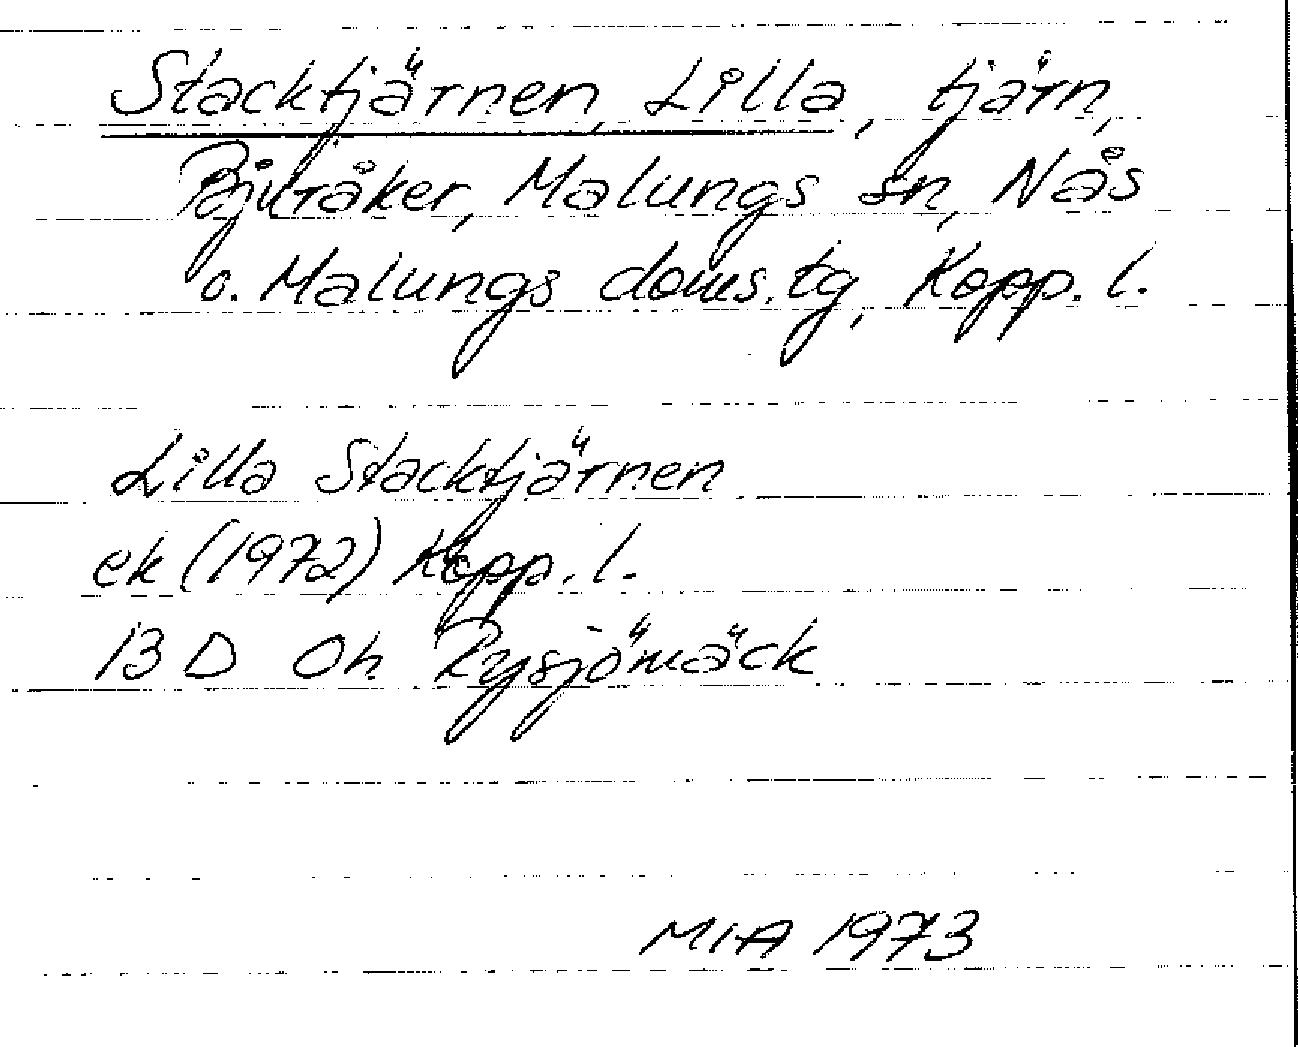 Stacktjärnen, Lilla, tjärn,
Bjuråker, Malungs sn, Nås
o. Malungs doms.tg, Kopp. l.
Lilla Stacktjärnen
ek (1972) Kopp. l.
13 D Oh Rysjömäck
MIA 1973